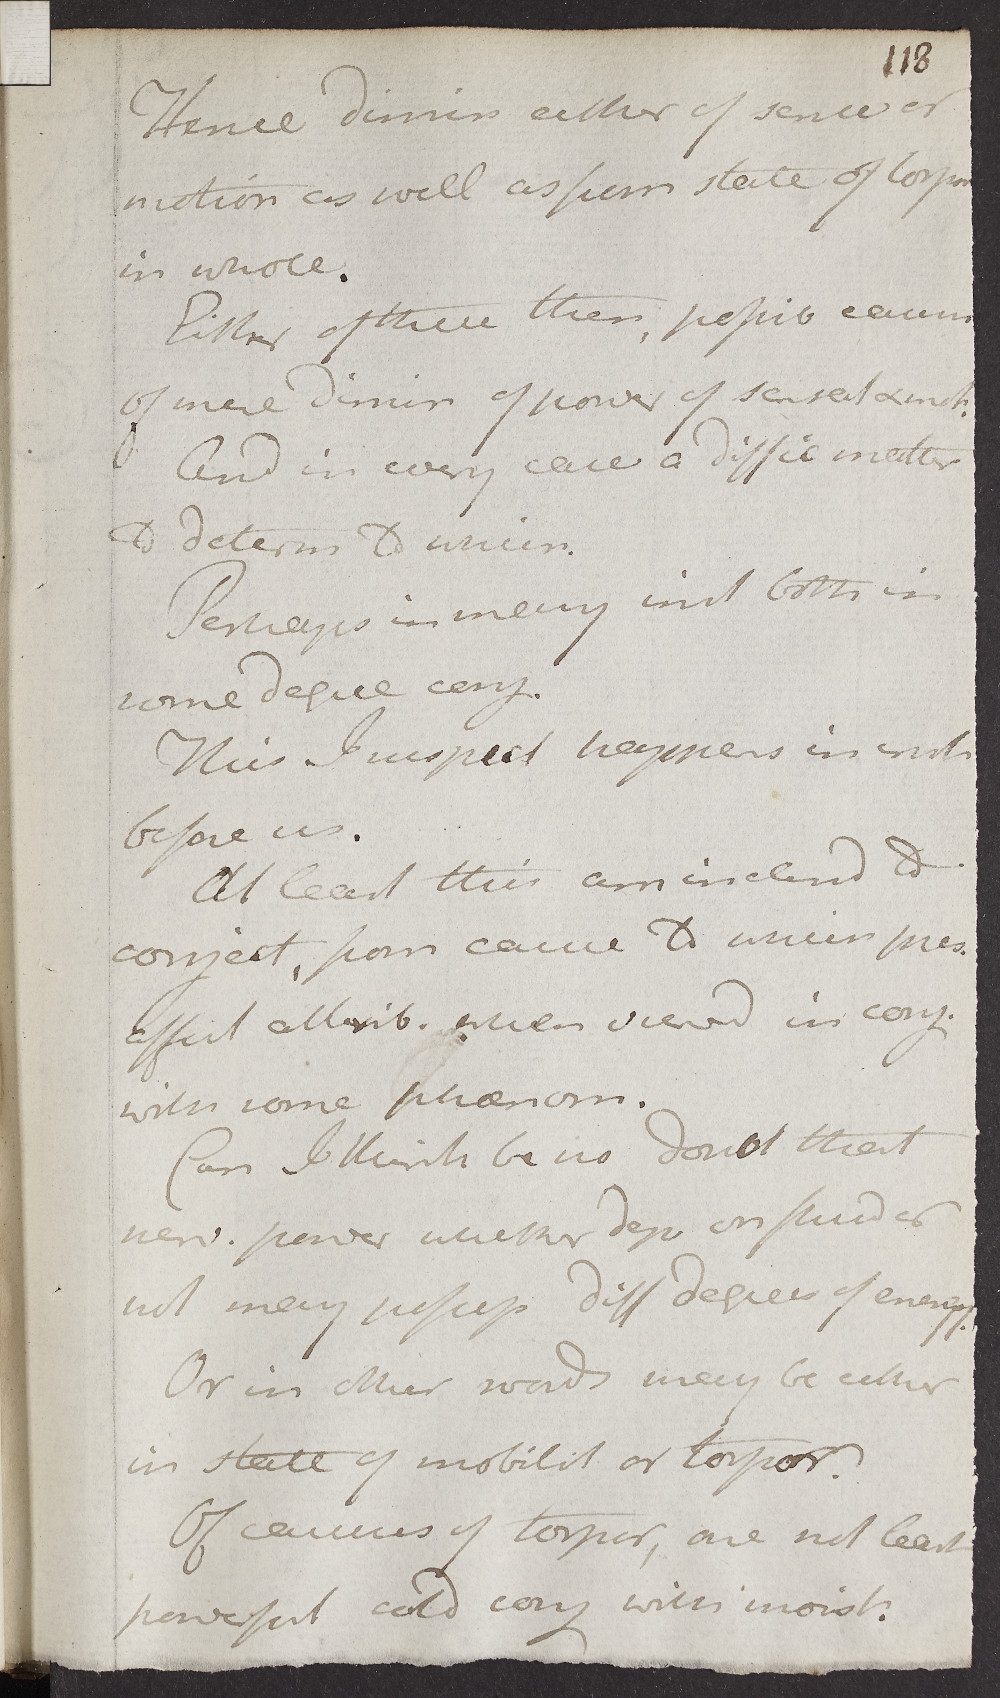 118
Hence dimin either of sense or
motion as well as from state of torpor
in whole.
Either of these then, possib causes
of mere dimin of power of sensat & mot.
And in every case a diffic matter
to determ to which.
Perhaps in many inst both in
some degree conj.
This I suspect happens in inst
before us.
At least this am inclind to
conject, from cause to which pres.
affect attrib. when viewd in conj.
with some phænom.
Can I think be no doubt that
nerv. power whether dep on fluid or
not may possess diff degrees of energy.
Or in other words may be either
in state of mobilit or torpor.
Of causes of torpor, are not least
powerful cold conj with moist.